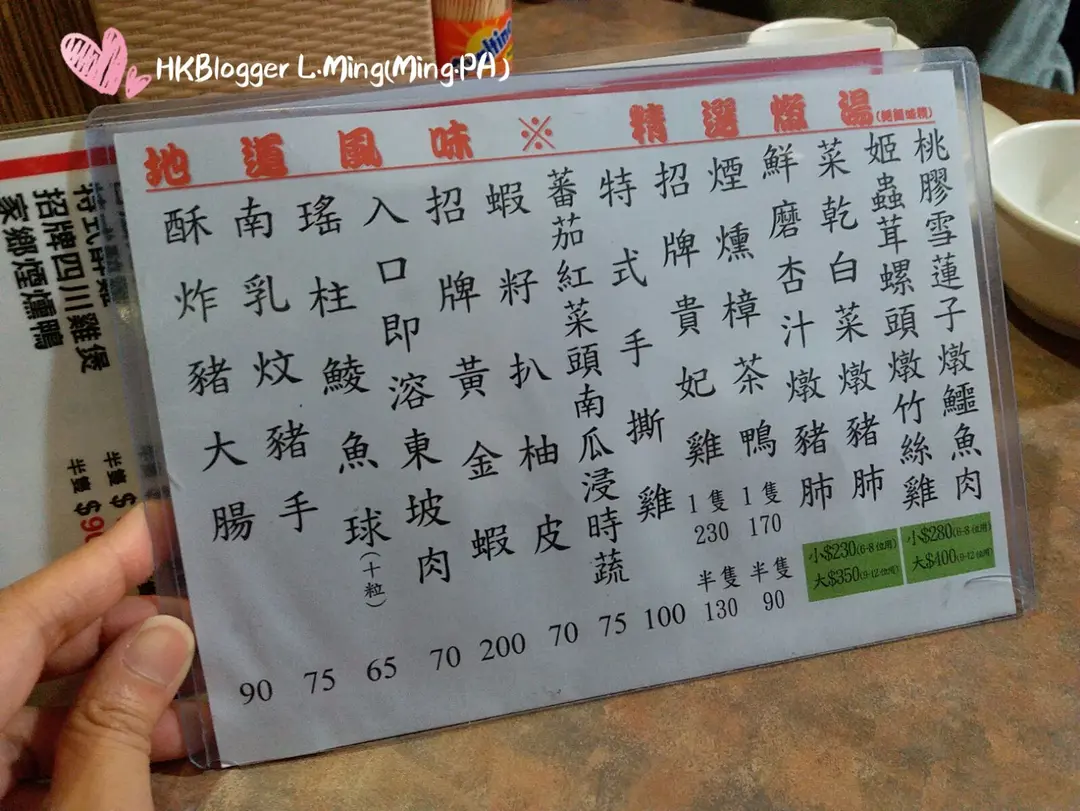 HKBlogger L.Ming(Ming.PA)
地道風味※精選燉湯(絕無味精)
桃膠雪蓮子燉鱷魚肉
姬蟲茸螺頭燉竹絲雞
小$280(6-8位用)
大$400(9-12位用)
菜乾白菜燉豬肺
鮮磨杏汁燉豬肺
小$230(6-8位用)
大$350(9-12位用)
煙燻樟茶鴨
1隻
170
半隻
90
招牌貴妃雞
1隻
230
半隻
130
特式手撕雞
100
蕃茄紅菜頭南瓜浸時蔬
75
蝦籽扒柚皮
70
招牌黃金蝦
200
入口即溶東坡肉
70
瑤柱鯪魚球(十粒)
65
南乳炆豬手
75
酥炸豬大腸
90
招牌四川雞煲
半隻 $
家鄉煙燻鴨
半隻 $